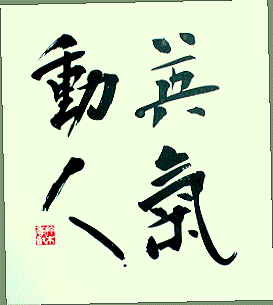 英氣
動人